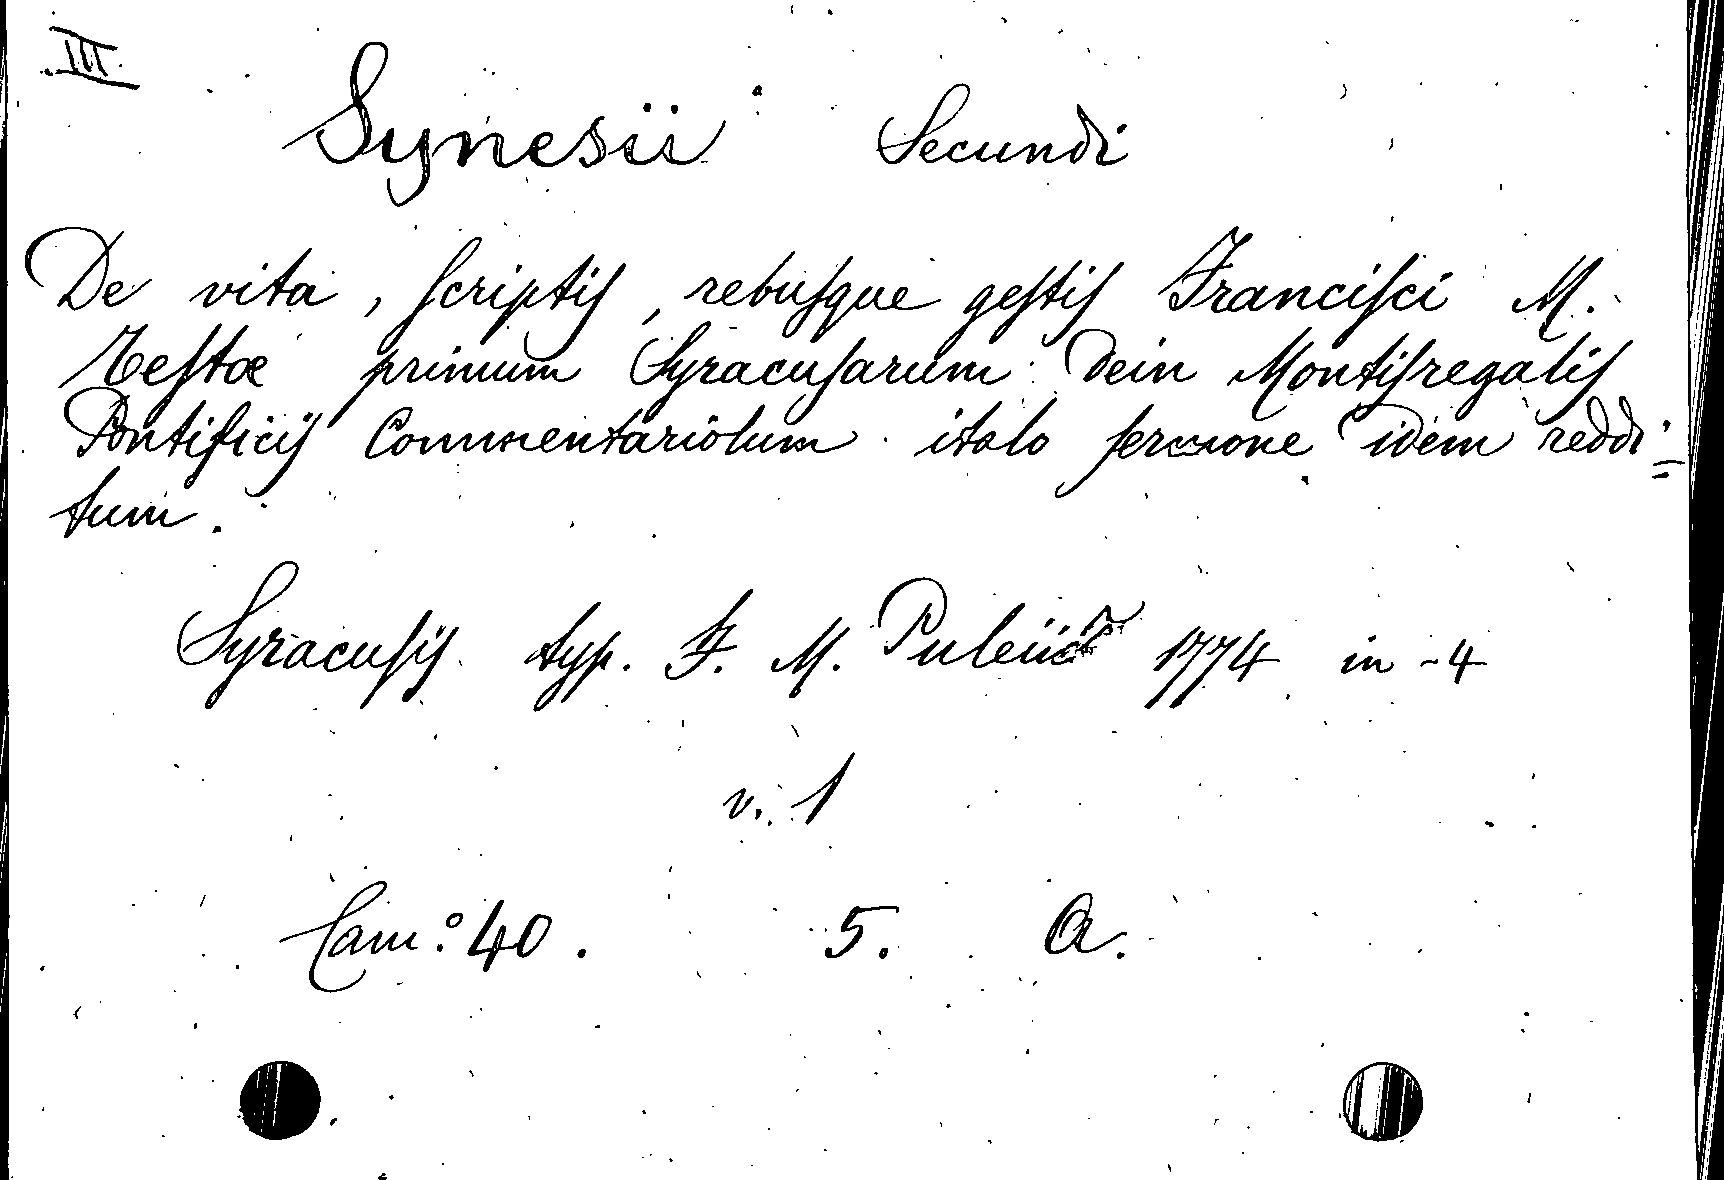 III.
Synesii Secundi
De vita, scriptis, rebusque gestis Francisci M.
Testæ primum Syracusarum dein Montisregalis
Pontificis Commentariolum italo sermone idem reddi=
tum.
Syracusis typ. F. M. 1774 in-4
v. 1
Cam: 40. 5. A.